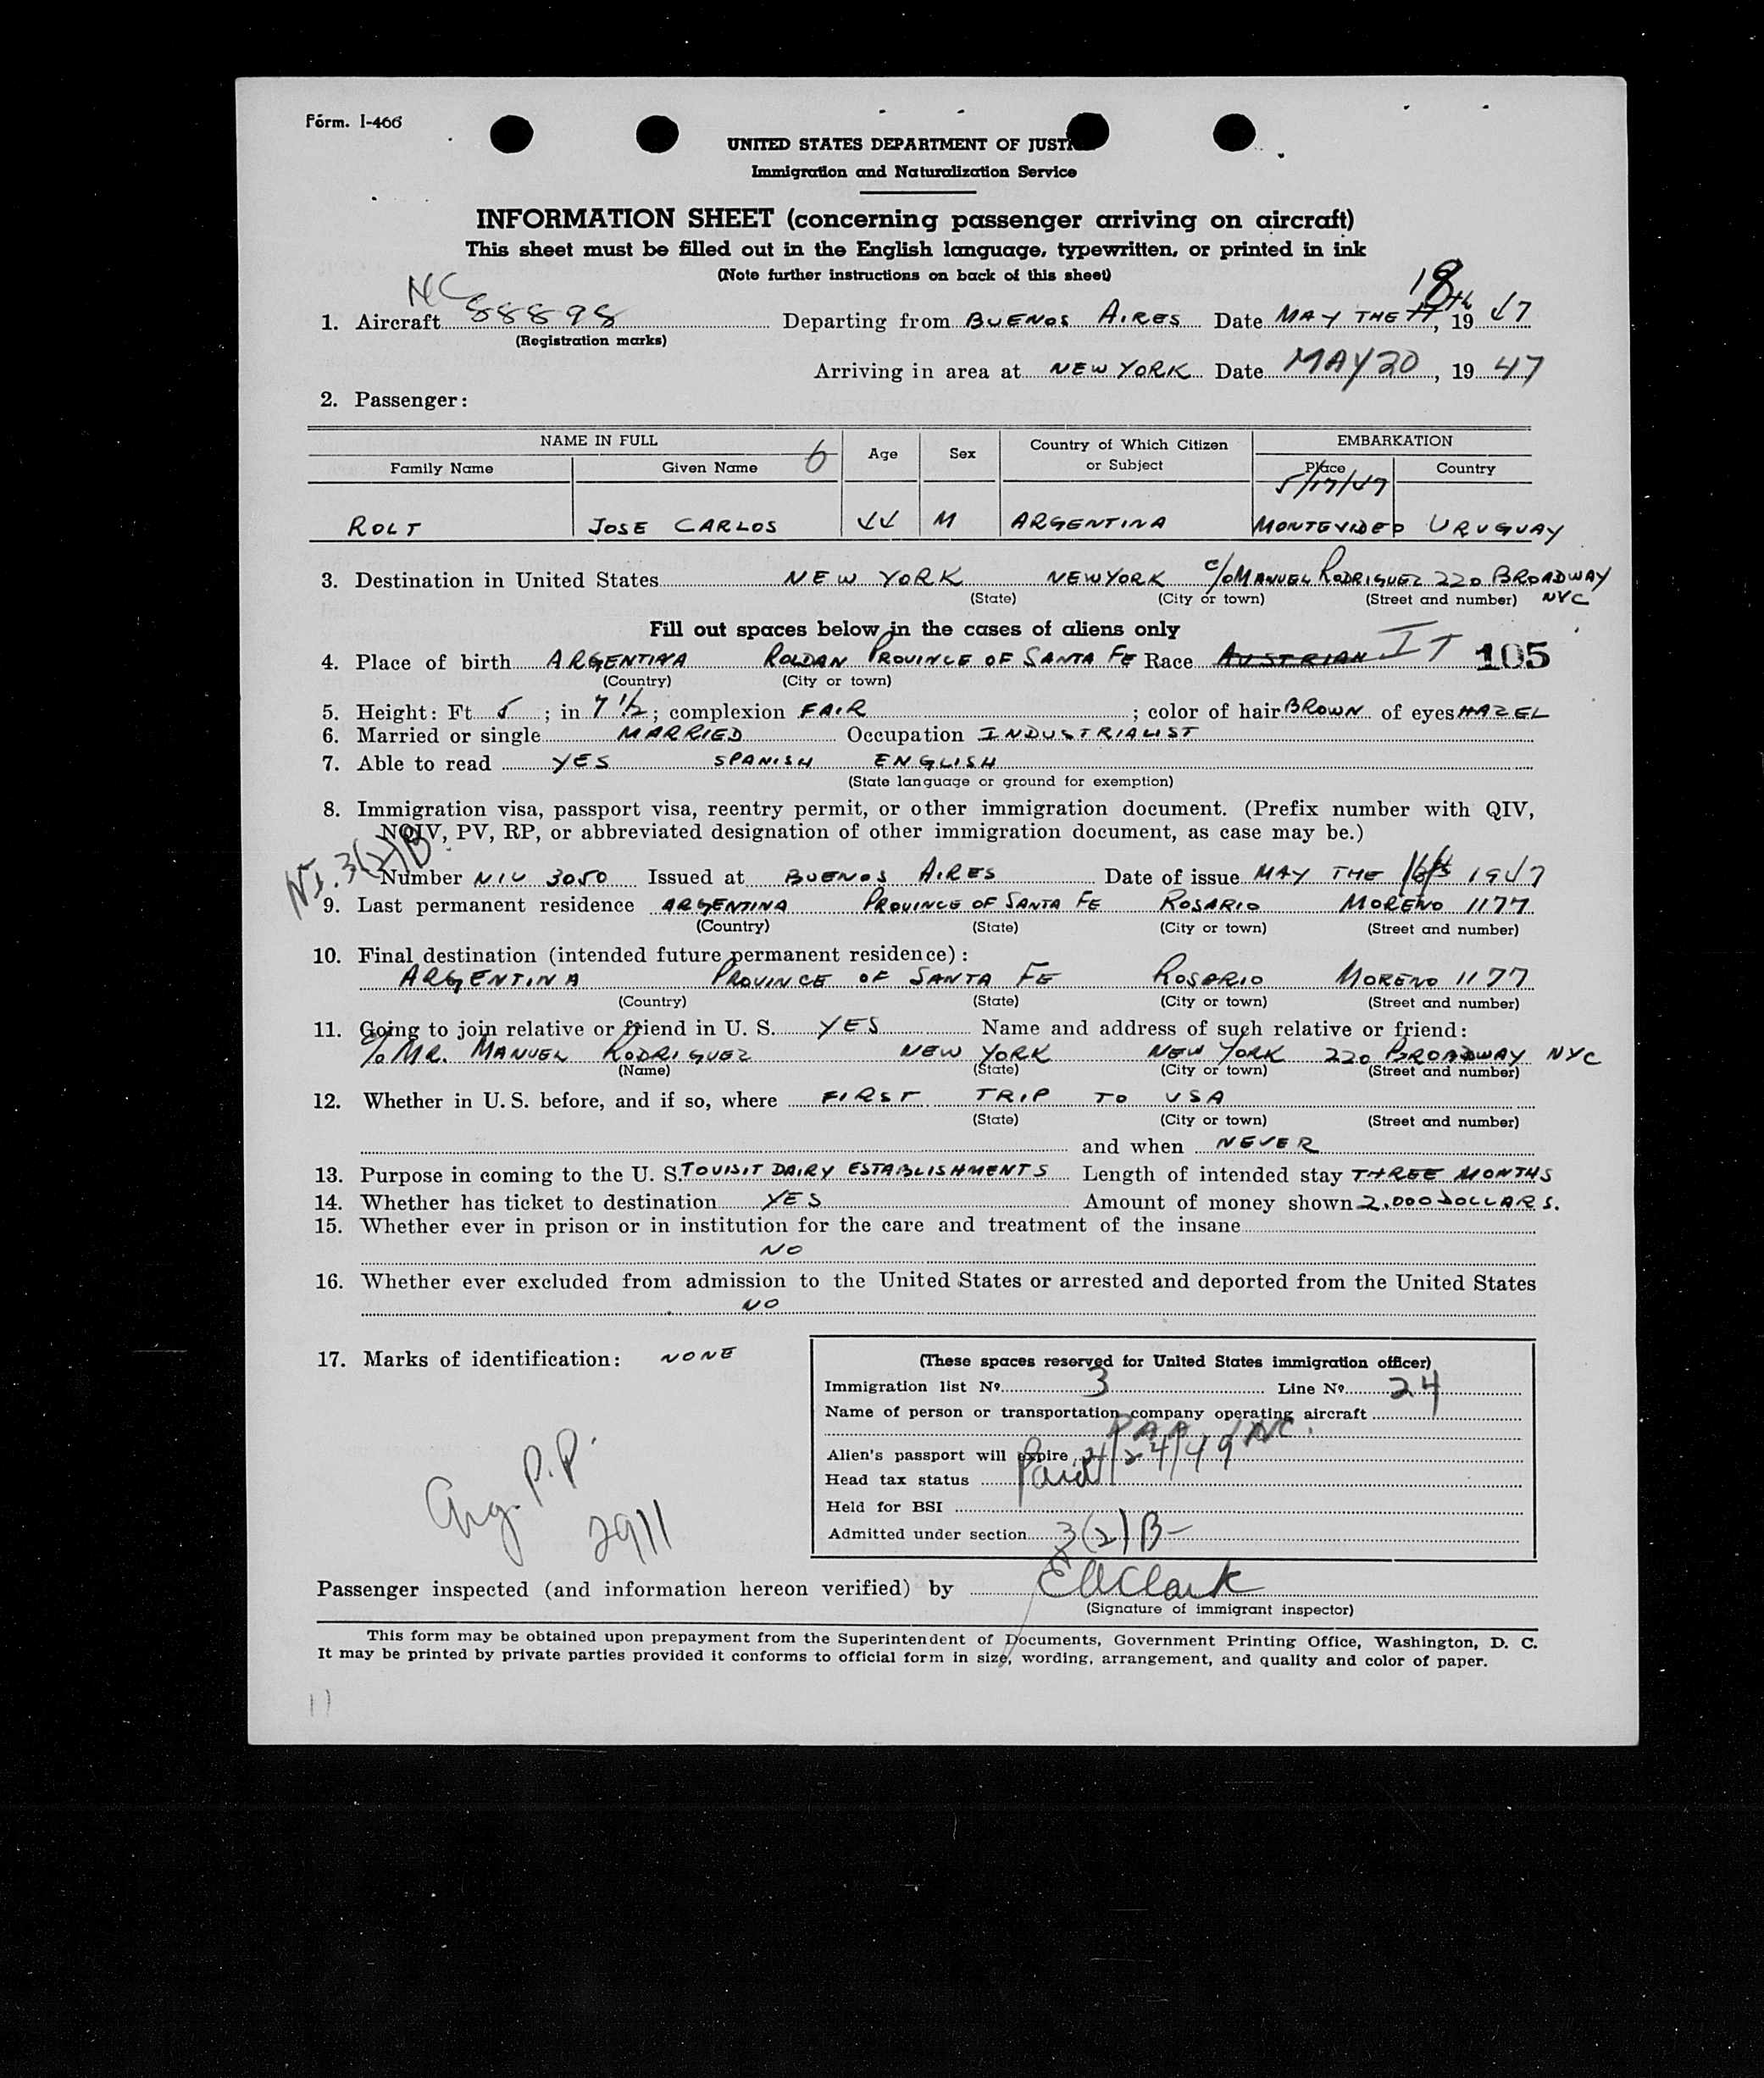 Form. I-466
UNITED STATES DEPARTMENT OF JUSTI
Immigration and Naturalization Service
INFORMATION SHEET (concerning passenger arriving on aircraft)
This sheet must be filled out in the English language, typewritten, or printed in ink
(Note further instructions on back of this sheet)
1. Aircraft NC 88898 Departing from BUENOS AIRES Date MAY THE 18th, 19 47
(Registration marks)
Arriving in area at NEW YORK Date MAY 20, 19 47
2. Passenger:
NAME IN FULL 6 Age Sex Country of Which Citizen or Subject EMBARKATION
Family Name Given Name Place Country
5/17/47
ROLT JOSE CARLOS 44 M ARGENTINA MONTEVIDEO URUGUAY
3. Destination in United States NEW YORK NEW YORK c/o MANUEL RODRIGUEZ 220 BROADWAY
(State) (City or town) (Street and number) NYC
Fill out spaces below in the cases of aliens only
4. Place of birth ARGENTINA ROLDAN PROVINCE OF SANTA FE Race AUSTRIAN IT 105
(Country) (City or town)
5. Height: Ft 5; in 7 1/2; complexion FAIR; color of hair BROWN of eyes HAZEL
6. Married or single MARRIED Occupation INDUSTRIALIST
7. Able to read YES SPANISH ENGLISH
(State language or ground for exemption)
8. Immigration visa, passport visa, reentry permit, or other immigration document. (Prefix number with QIV,
NQIV, PV, RP, or abbreviated designation of other immigration document, as case may be.)
3(2)B
Number NIV 3050 Issued at BUENOS AIRES Date of issue MAY THE 16th 1947
9. Last permanent residence ARGENTINA PROVINCE OF SANTA FE ROSARIO MORENO 1177
(Country) (State) (City or town) (Street and number)
10. Final destination (intended future permanent residence):
ARGENTINA PROVINCE OF SANTA FE ROSARIO MORENO 1177
(Country) (State) (City or town) (Street and number)
11. Going to join relative or friend in U. S. YES Name and address of such relative or friend:
c/o MR. MANUEL RODRIGUEZ NEW YORK NEW YORK 220 BROADWAY NYC
(Name) (State) (City or town) (Street and number)
12. Whether in U. S. before, and if so, where FIRST TRIP TO USA
(State) (City or town) (Street and number)
and when NEVER
13. Purpose in coming to the U. S. TO VISIT DAIRY ESTABLISHMENTS Length of intended stay THREE MONTHS
14. Whether has ticket to destination YES Amount of money shown 2.000 DOLLARS.
15. Whether ever in prison or in institution for the care and treatment of the insane
NO
16. Whether ever excluded from admission to the United States or arrested and deported from the United States
NO
17. Marks of identification: NONE
(These spaces reserved for United States immigration officer)
Immigration list No 3 Line No 24
Name of person or transportation company operating aircraft
PAA INC.
Alien's passport will expire 2/24/49
Head tax status Paid
Held for BSI
Admitted under section 3(2)B-
Arg. P.P.
2911
Passenger inspected (and information hereon verified) by E Clark
(Signature of immigrant inspector)
This form may be obtained upon prepayment from the Superintendent of Documents, Government Printing Office, Washington, D. C.
It may be printed by private parties provided it conforms to official form in size, wording, arrangement, and quality and color of paper.